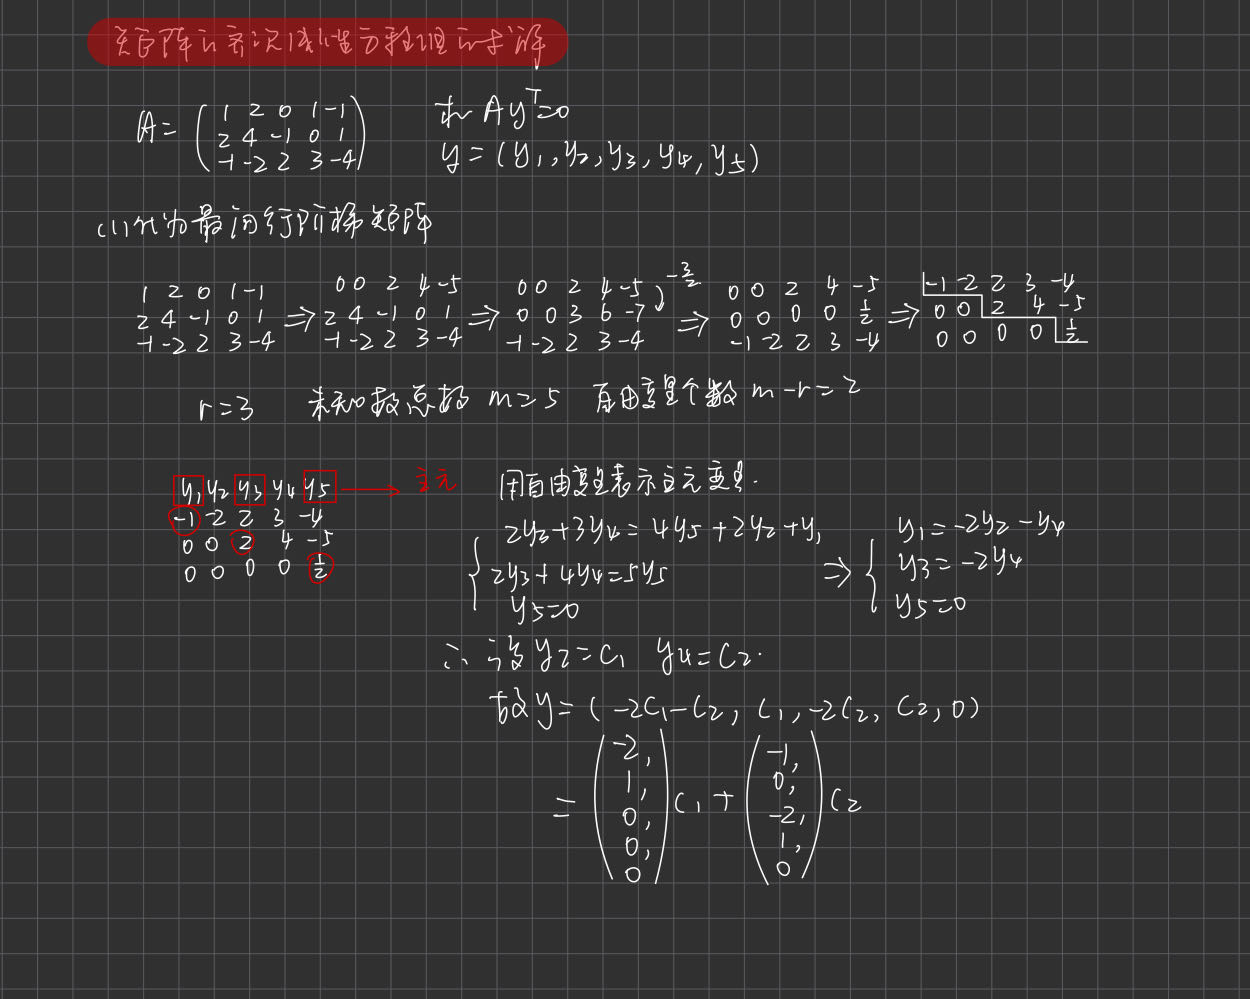 矩阵的齐次线性方程组的求解
A = ( 1 2 0 1 -1
2 4 -1 0 1
-1 -2 2 3 -4 )
求 Ay^T=0
y = (y₁, y₂, y₃, y₄, y₅)
(1) 化为最简行阶梯矩阵
1 2 0 1 -1
2 4 -1 0 1
-1 -2 2 3 -4
⇒
0 0 2 4 -5
2 4 -1 0 1
-1 -2 2 3 -4
⇒
0 0 2 4 -5
0 0 3 6 -7
-1 -2 2 3 -4
-3/2
⇒
0 0 2 4 -5
0 0 0 0 1/2
-1 -2 2 3 -4
⇒
-1 -2 2 3 -4
0 0 2 4 -5
0 0 0 0 1/2
r=3 未知数总数 m=5 自由变量个数 m-r=2
y₁ y₂ y₃ y₄ y₅ → 主元
-1 -2 2 3 -4
0 0 2 4 -5
0 0 0 0 1/2
用自由变量表示主元变量.
{ 2y₃+3y₄=4y₅+2y₂+y₁
2y₃+4y₄=5y₅
y₅=0
⇒ { y₁=-2y₂-y₄
y₃=-2y₄
y₅=0
∴ 设 y₂=C₁ y₄=C₂.
故 y=(-2C₁-C₂, C₁, -2C₂, C₂, 0)
= ( -2,
1,
0,
0,
0 ) C₁ + ( -1,
0,
-2,
1,
0 ) C₂